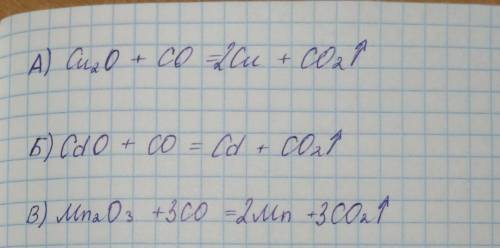 А) Cu₂O + CO =2Cu + CO₂↑
Б) CdO + CO = Cd + CO₂↑
В) Mn₂O₃ +3CO =2Mn +3CO₂↑